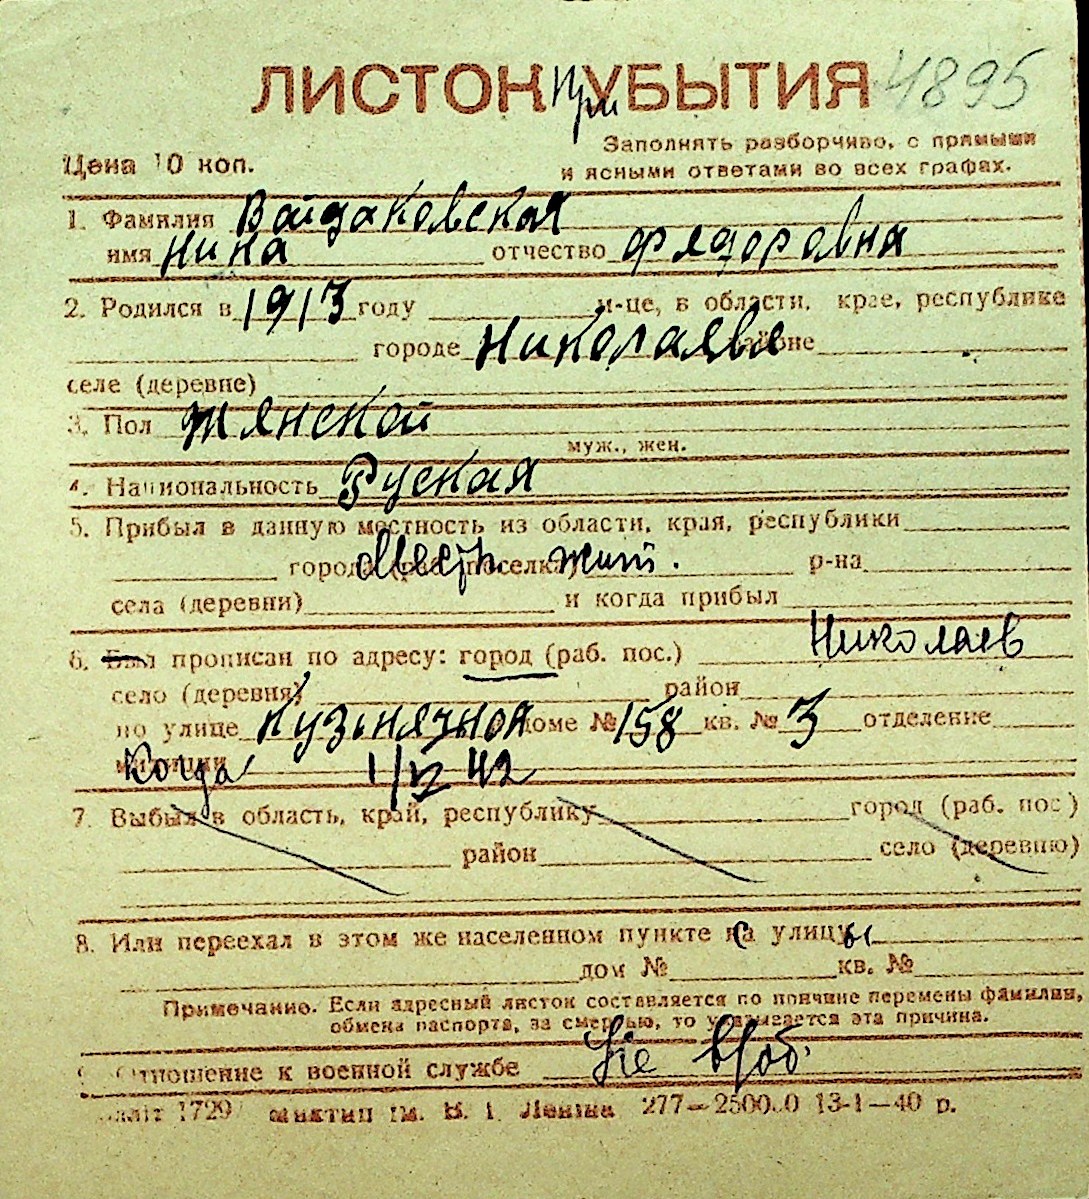 ЛИСТОК При УБЫТИЯ 4895
Заполнять разборчиво, с прямыми
Цена 10 коп. и ясными ответами во всех графах.
1. Фамилия Вайдаковская
имя Нина отчество Фядоровна
2. Родился в 1913 году м-це, в области, крае, республике
городе Николаяве районе
селе (деревне)
3. Пол Жянской
муж., жен.
4. Национальность Руская
5. Прибыл в данную местность из области, края, республики
города (раб. поселка) Местн. жит. р-на
села (деревни) и когда прибыл
6. Был прописан по адресу: город (раб. пос.) Николаев
село (деревня) район
по улице Кузьнячной доме № 158 кв. № 3 отделение
милиции Когда 1/IV 42
7. Выбыл в область, край, республику город (раб. пос)
район село (деревню)
8. Или переехал в этом же населенном пункте са улицы
дом № кв. №
Примечание. Если адресный листок составляется по причине перемены фамилии,
обмена паспорта, за смертью, то указывается эта причина.
Отношение к военной службе
1729 им. В. І. Леніна 277—2500.0 13-1—40 р.